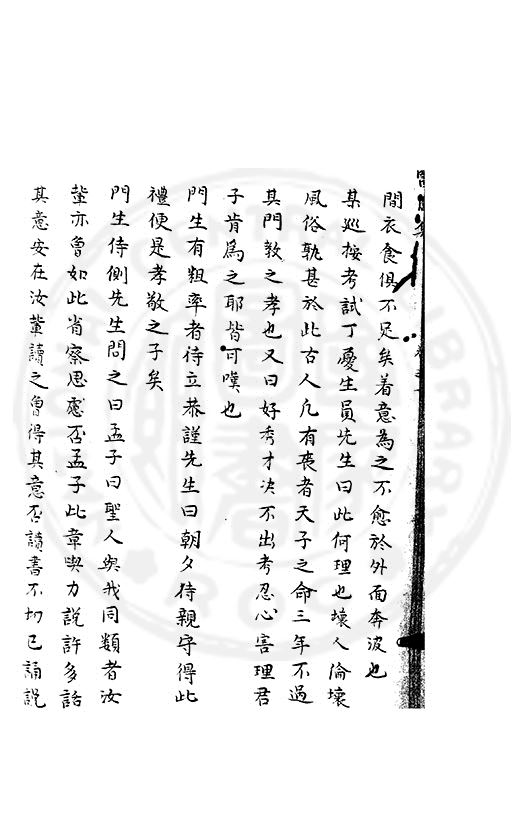 間衣食俱不足矣着意為之不愈於外面奔波也
某廵按考試丁憂生員先生曰此何理也壞人倫壞
風俗孰甚於此古人凡有喪者天子之命三年不過
其門敎之孝也又曰好秀才决不出考忍心害理君
子肯爲之耶皆可嘆也
門生有粗率者侍立恭謹先生曰朝夕侍親守得此
禮便是孝敬之子矣
門生侍側先生問之曰孟子曰聖人與我同類者汝
輩亦曾如此省察思慮否孟子此章與力說許多話
其意安在汝輩讀之曾得其意否讀書不切己誦說